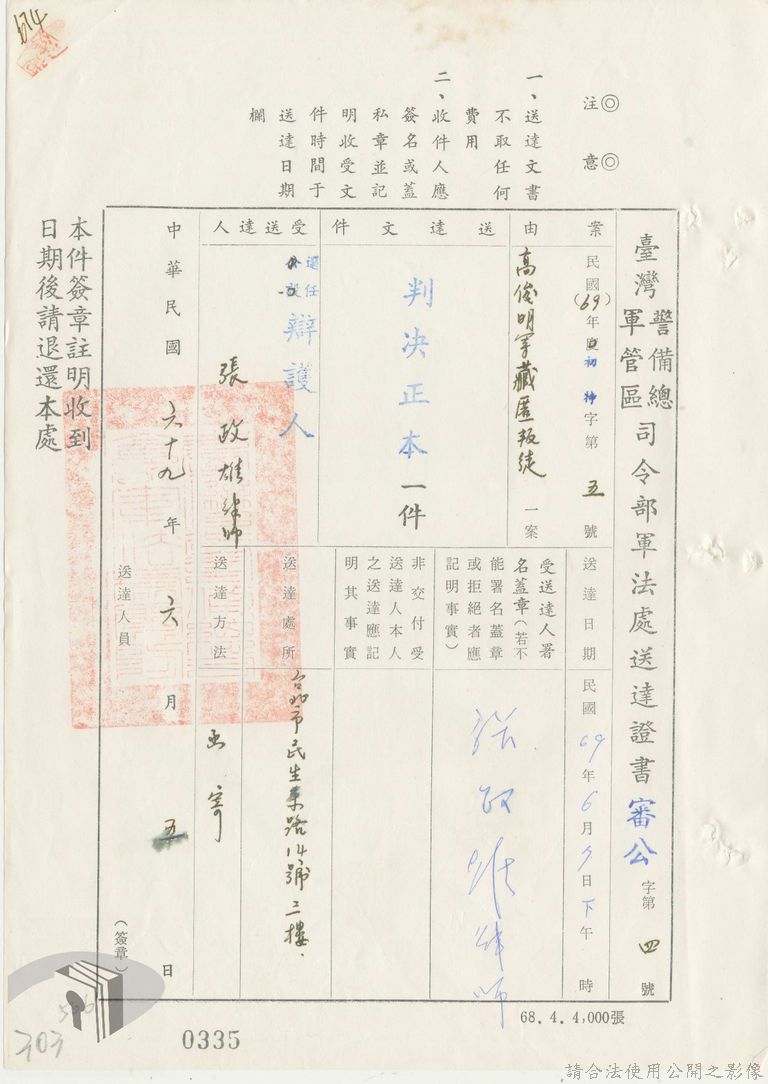 674
注意
一、送達文書不取任何費用
二、收件人應簽名或蓋私章並記明收受文件時間于送達日期欄
臺灣警備總軍管區司令部軍法處送達證書審公字第四號
案由
民國(69)年度初特字第五號
高俊明等藏匿叛徒一案
送達文件
判決正本一件
受送達人
選任
辯護人
張政雄律師
送達日期
民國69年6月7日下午時
受送達人署名蓋章(若不能署名蓋章或拒絕者應記明事實)
張政雄律師
非交付受送達人本人之送達應記明其事實
送達處所
台北市民生東路14號三樓.
送達方法
函寄
中華民國六十九年六月五日
送達人員
(簽章)
本件簽章註明收到日期後請退還本處
68.4.4,000張
0335
566
303
請合法使用公開之影像